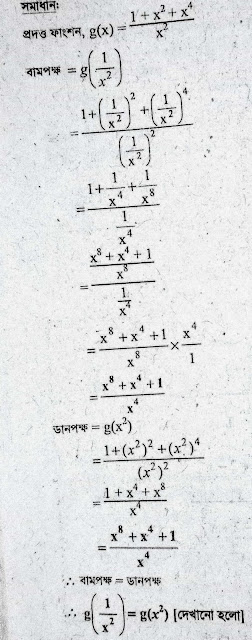 সমাধান:
প্রদত্ত ফাংশন, g(x) = (1 + x² + x⁴)/x²
বামপক্ষ = g(1/x²)
= (1 + (1/x²)² + (1/x²)⁴)/(1/x²)²
= (1 + 1/x⁴ + 1/x⁸)/(1/x⁴)
= ((x⁸ + x⁴ + 1)/x⁸)/(1/x⁴)
= (x⁸ + x⁴ + 1)/x⁸ × x⁴/1
= (x⁸ + x⁴ + 1)/x⁴
ডানপক্ষ = g(x²)
= (1 + (x²)² + (x²)⁴)/(x²)²
= (1 + x⁴ + x⁸)/x⁴
= (x⁸ + x⁴ + 1)/x⁴
∴ বামপক্ষ = ডানপক্ষ
∴ g(1/x²) = g(x²) [দেখানো হলো]